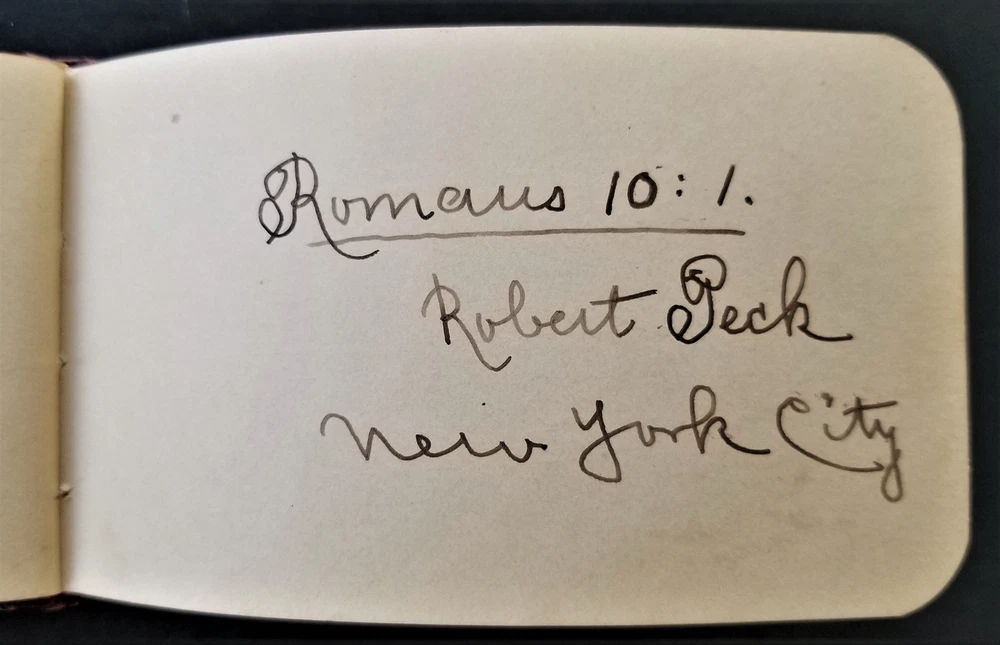 Romans 10:1.
Robert Peck
New York City